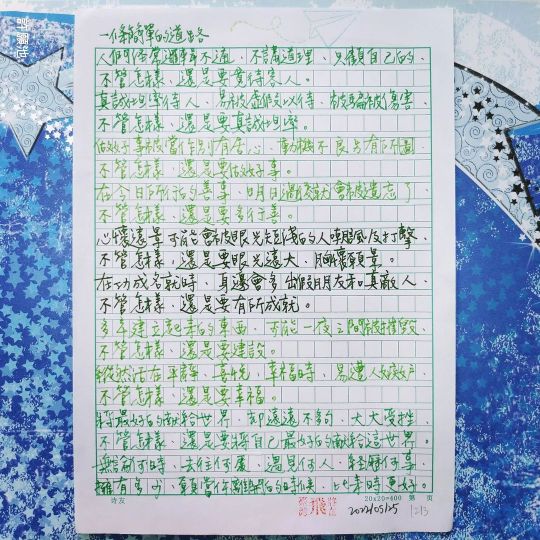 一條簡單的道路
人們經常邏輯不通、不講道理、只顧自己的、
不管怎樣、還是要善待家人。
真誠坦率待人、易被虛假以待、被騙被傷害、
不管怎樣、還是要真誠坦率。
做好事被當作別有居心、動機不良占有所圖、
不管怎樣、還是要做好事。
在今日所做的善事、明日過後就會被遺忘了、
不管怎樣、還是要多行善。
心懷遠景可能會被眼光短淺的人嘲諷反打擊、
不管怎樣、還是要眼光遠大、胸懷願景。
在功成名就時、身邊會多出假朋友和真敵人、
不管怎樣、還是要有所成就。
多年建立起來的東西、可能一夜之間被摧毀、
不管怎樣、還是要建設。
縱然活在平靜、喜悅、幸福時、易遭人嫉妒、
不管怎樣、還是要幸福。
將最好的獻給世界、卻遠遠不夠、大大受挫、
不管怎樣、還是要將自己最好的獻給這世界。
無論何時、去往何處、遇見何人、經歷何事、
擁有多少、願當你離開後的時候、比來時更好。
詩友
20×20=400 第 頁
2022/05/25
1213